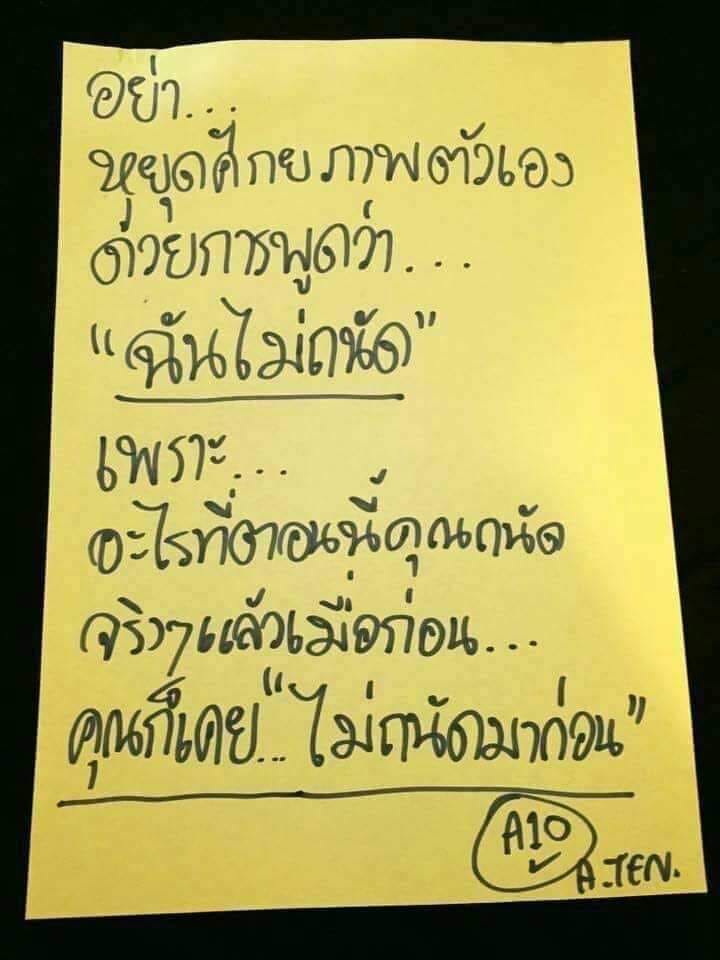 อย่า...
หยุดศักยภาพตัวเอง
ด้วยการพูดว่า...
"ฉันไม่ถนัด"
เพราะ...
อะไรที่ตอนนี้คุณถนัด
จริงๆแล้วเมื่อก่อน...
คุณก็เคย..."ไม่ถนัดมาก่อน"
A10
A.TEN.